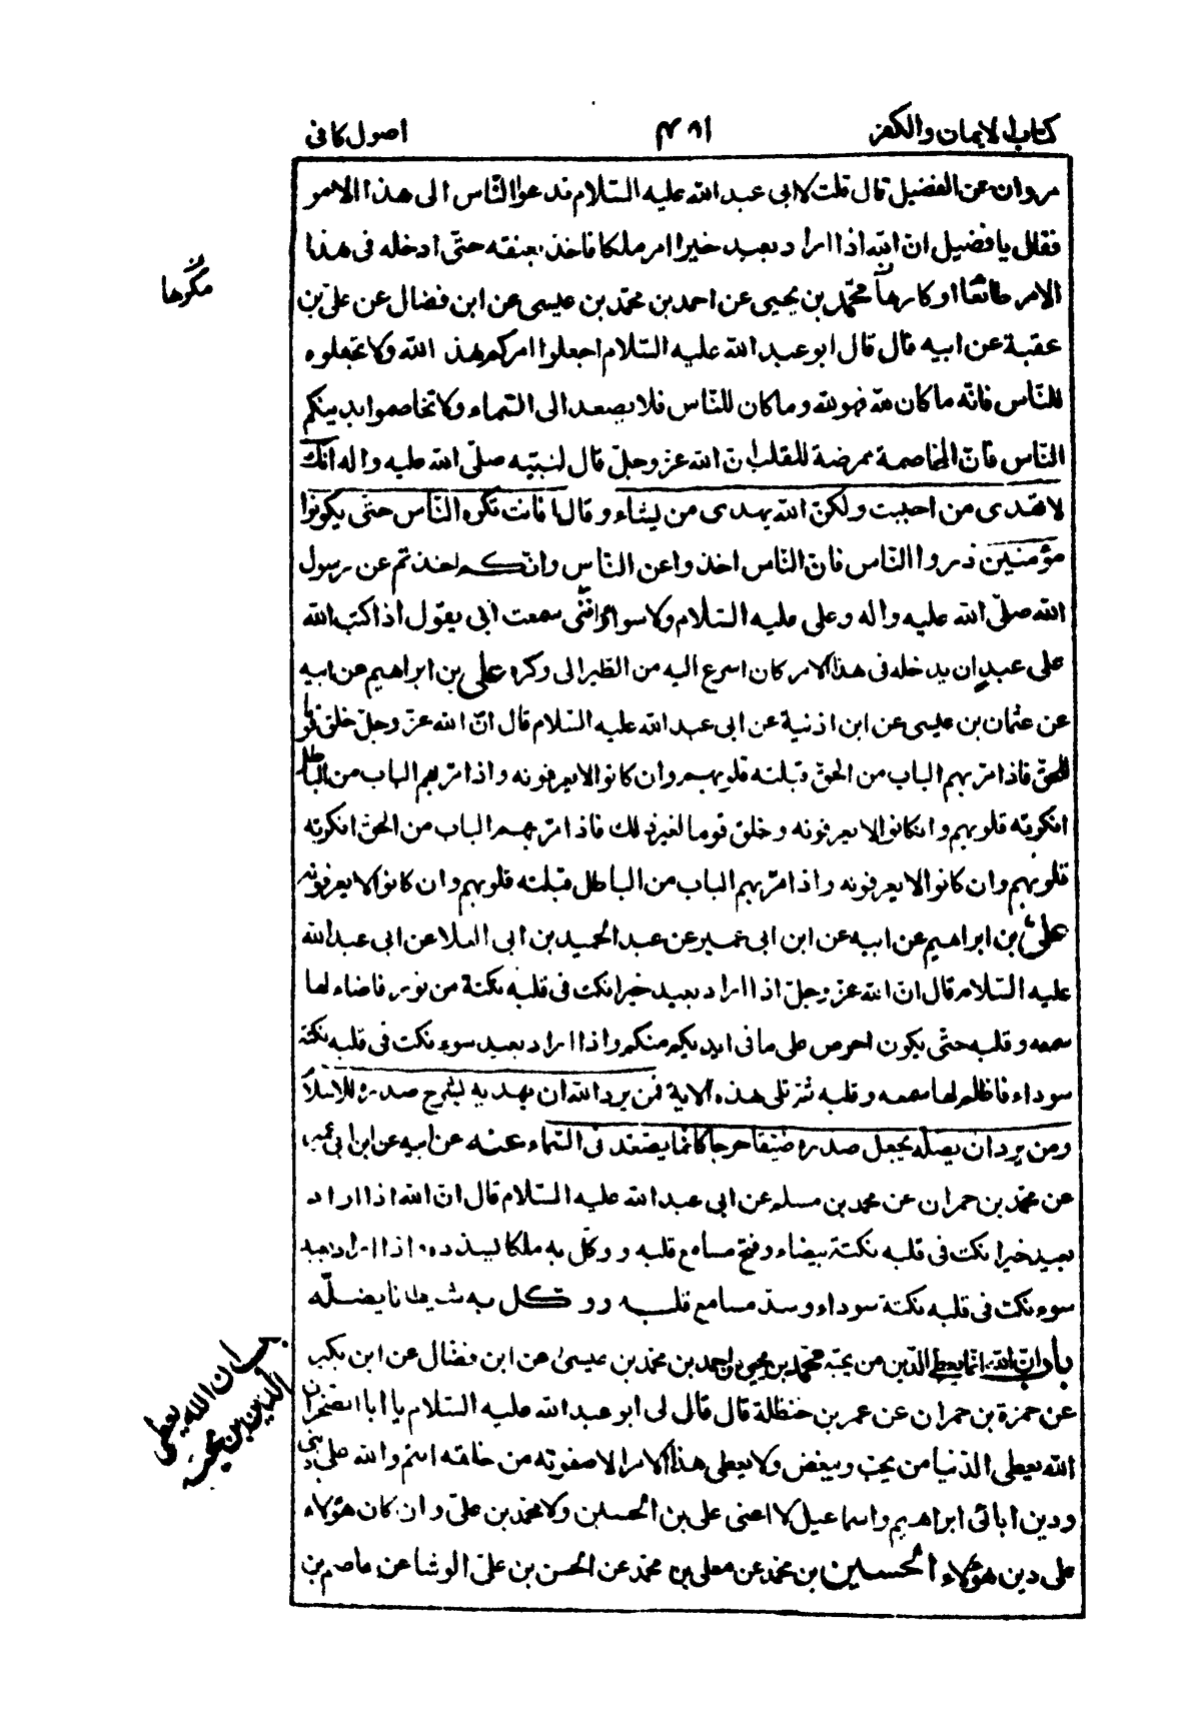 كتاب الايمان والكفر
٤٨١
اصول كافى
مروان عن الفضيل قال قلت لابى عبد الله عليه السّلام ندعوا النّاس الى هذا الامر
فقال يا فضيل انّ الله اذا اراد بعبد خيرا امر ملكا فاخذ بعنقه حتّى ادخله فى هذا
الامر طائعًا او كارهاً محمّد بن يحيى عن احمد بن محمّد بن عيسى عن ابن فضال عن علىّ بن
مكرها
عقبة عن ابيه قال قال ابو عبد الله عليه السّلام اجعلوا امركم هذا لله ولا تجعلوه
للنّاس فانّه ما كان لله فهو لله وما كان للنّاس فلا يصعد الى السّماء ولا تخاصموا بدينكم
النّاس فانّ المخاصمة ممرضة للقلب انّ الله عزّ وجلّ قال لنبيّه صلّى الله عليه واله انّك
لا تهدى من احببت ولكنّ الله يهدى من يشاء وقال افانت تكره النّاس حتّى يكونوا
مؤمنين ذروا النّاس فانّ النّاس اخذوا عن النّاس وانّكم اخذتم عن رسول
الله صلّى الله عليه واله وعلى عليه السّلام ولا سواء وانّنى سمعت ابى يقول اذا كتب الله
على عبد ان يدخله فى هذا الامر كان اسرع اليه من الطّير الى وكره على بن ابراهيم عن ابيه
عن عثمان بن عيسى عن ابن اذنية عن ابى عبد الله عليه السّلام قال انّ الله عزّ وجلّ خلق قوما
للحقّ فاذا مرّ بهم الباب من الحقّ قبلته قلوبهم وان كانوا لا يعرفونه واذا مرّ بهم الباب من الباطل
انكرته قلوبهم وان كانوا لا يعرفونه وخلق قوما لغير ذلك فاذا مرّ بهم الباب من الحقّ انكرته
قلوبهم وان كانوا لا يعرفونه واذا مرّ بهم الباب من الباطل قبلته قلوبهم وان كانوا لا يعرفونه
علىّ بن ابراهيم عن ابيه عن ابن ابى عمير عن عبد الحميد بن ابى العلا عن ابى عبد الله
عليه السّلام قال انّ الله عزّ وجلّ اذا اراد بعبد خيرا نكت فى قلبه نكتة من نور فاضاء لها
سمعه وقلبه حتّى يكون احرص على ما فى ايديكم منكم واذا اراد بعبد سوء نكت فى قلبه نكتة
سوداء فاظلم لها سمعه وقلبه ثمّ تلى هذه الاية فمن يرد الله ان يهديه يشرح صدره للاسلام
ومن يرد ان يضله يجعل صدره ضيّقا حرجا كانّما يصّعّد فى السّماء عنه عن ابيه عن ابن ابى عمير
عن محمّد بن حمران عن محمد بن مسلم عن ابى عبد الله عليه السّلام قال انّ الله اذا اراد
بعبد خيرا نكت فى قلبه نكتة بيضاء وفتح مسامع قلبه ووكّل به ملكا يسدده واذا اراد بعبد
سوء نكت فى قلبه نكتة سوداء وسدّ مسامع قلبه ووكل به شيطانا يضلّه
باب انّ الله انّما يعطى الدّين من يحبّه محمّد بن يحيى عن احمد بن محمد بن عيسى عن ابن فضّال عن ابن بكير
ب ان الله يعطى
الدين من يحبه
عن حمزة بن حمران عن عمر بن حنظلة قال قال لى ابو عبد الله عليه السّلام يا ابا الصّخر ان
الله يعطى الدّنيا من يحبّ ويبغض ولا يعطى هذا الامر الا صفوته من خلقه انتم والله على دينى
ودين ابائى ابراهيم واسماعيل لا اعنى على بن الحسين ولا محمّد بن علىّ وان كان هؤلاء
على دين هؤلاء الحسين بن محمد عن معلى بن محمّد عن الحسن بن علىّ الوشا عن عاصم بن